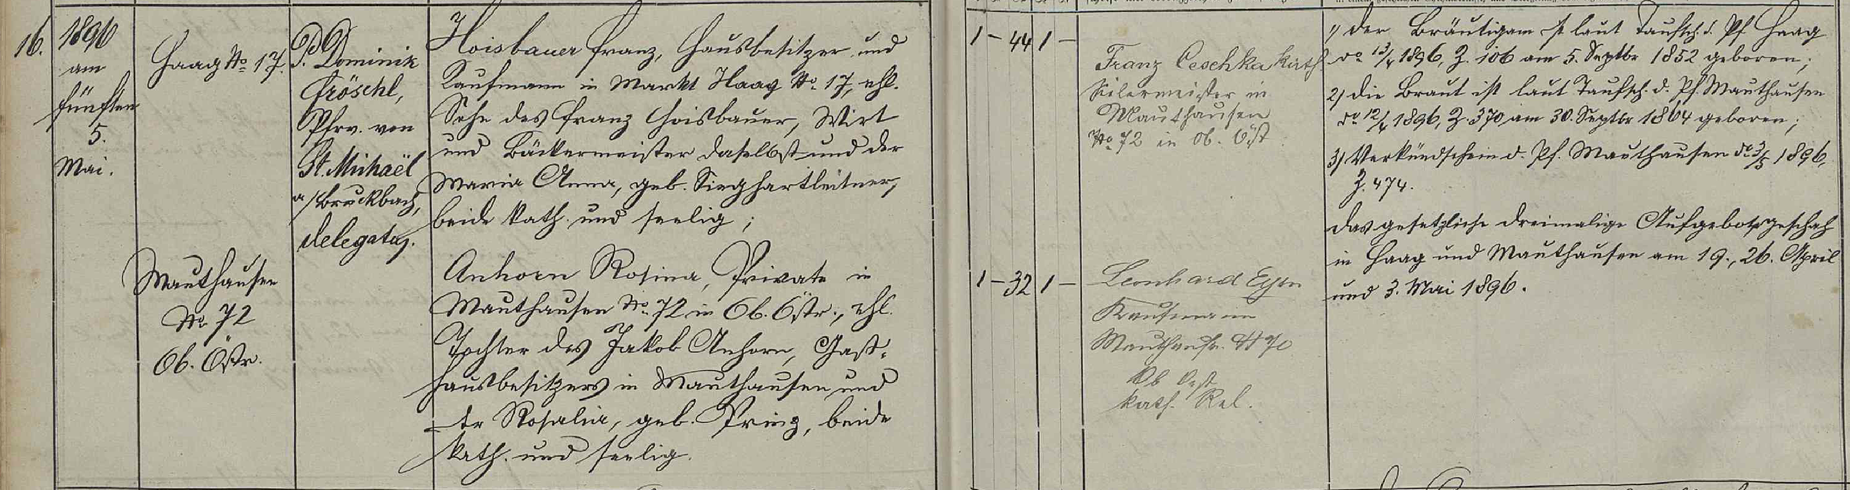 16.
1896
am
fünften
5.
Mai.
Haag No 17.
Mauthausen
No 72
Ob. Östr.
P. Dominik
Fröschl,
Pfrv. von
St. Michaël
a/Bruckbach,
delegatus.
Hoisbauer Franz, Hausbesitzer und
Kaufmann in Markt Haag No 17, ehl.
Sohn des Franz Hoisbauer, Wirt
und Bäckermeister daselbst und der
Maria Anna, geb. Sieghartleitner,
beide kath. und seelig;
Anhorn Rosina, Private in
Mauthausen No 72 in Ob. Östr., ehl.
Tochter des Jakob Anhorn, Gast-
hausbesitzers in Mauthausen und
der Rosalia, geb. Prinz, beide
kath. und seelig.
1 - 44 1 -
1 - 32 1 -
Franz Ceschka kath
Seilermeister in
Mauthausen
No 72 in Ob. Öst
Leonhard
Kaufmann
Mauthausen
Ob Oest
kath. Rel.
1) Der Bräutigam ist laut Taufsch. d. Pf. Haag
1896, Z. 106 am 5. Septbr 1852 geboren;
2) die Braut ist laut Taufsch. d. Pf. Mauthausen
1896, Z. 370 am 30. Septbr 1864 geboren;
3) Verkündschein d. Pf. Mauthausen do 3/5 1896,
Z. 474.
Das gesetzliche dreimalige Aufgebot geschah
in Haag und Mauthausen am 19., 26. April
und 3. Mai 1896.